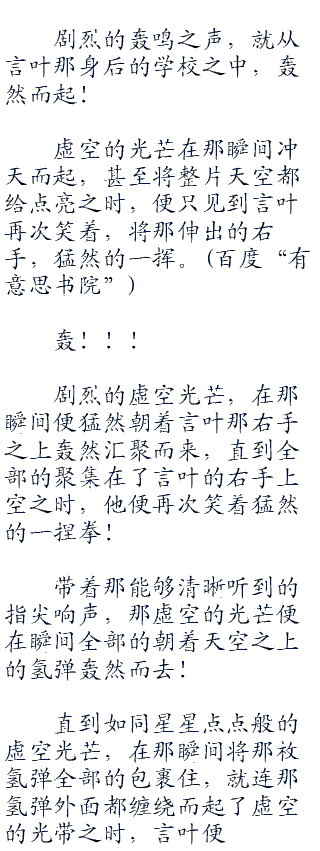 剧烈的轰鸣之声，就从
言叶那身后的学校之中，轰
然而起！
虚空的光芒在那瞬间冲
天而起，甚至将整片天空都
给点亮之时，便只见到言叶
再次笑着，将那伸出的右
手，猛然的一挥。(百度“有
意思书院”)
轰！！！
剧烈的虚空光芒，在那
瞬间便猛然朝着言叶那右手
之上轰然汇聚而来，直到全
部的聚集在了言叶的右手上
空之时，他便再次笑着猛然
的一捏拳！
带着那能够清晰听到的
指尖响声，那虚空的光芒便
在瞬间全部的朝着天空之上
的氢弹轰然而去！
直到如同星星点点般的
虚空光芒，在那瞬间将那枚
氢弹全部的包裹住，就连那
氢弹外面都缠绕而起了虚空
的光带之时，言叶便